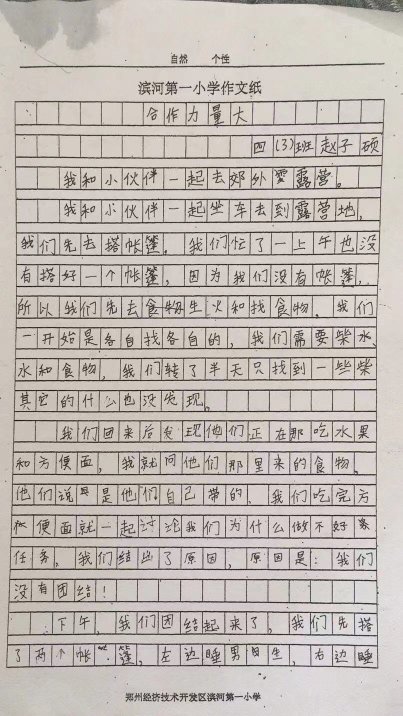 自然 个性
滨河第一小学作文纸
合作力量大
四(3)班赵子硕
我和小伙伴一起去郊外露营。
我和小伙伴一起坐车去到露营地,
我们先去搭帐篷。我们忙了一上午也没
有搭好一个帐篷,因为我们没有帐篷,
所以我们先去食物生火和找食物。我们
一开始是各自找各自的,我们需要柴水、
水和食物,我们转了半天只找到一些柴
其它的什么也没发现。
我们回来后发现他们正在那吃水果
和方便面,我就问他们那里来的食物。
他们说是他们自己带的,我们吃完方
便面就一起讨论我们为什么做不好
任务,我们结出了原因,原因是:我们
没有团结!
下午,我们团结起来了,我们先搭
了两个帐篷,左边睡男生,右边睡
郑州经济技术开发区滨河第一小学